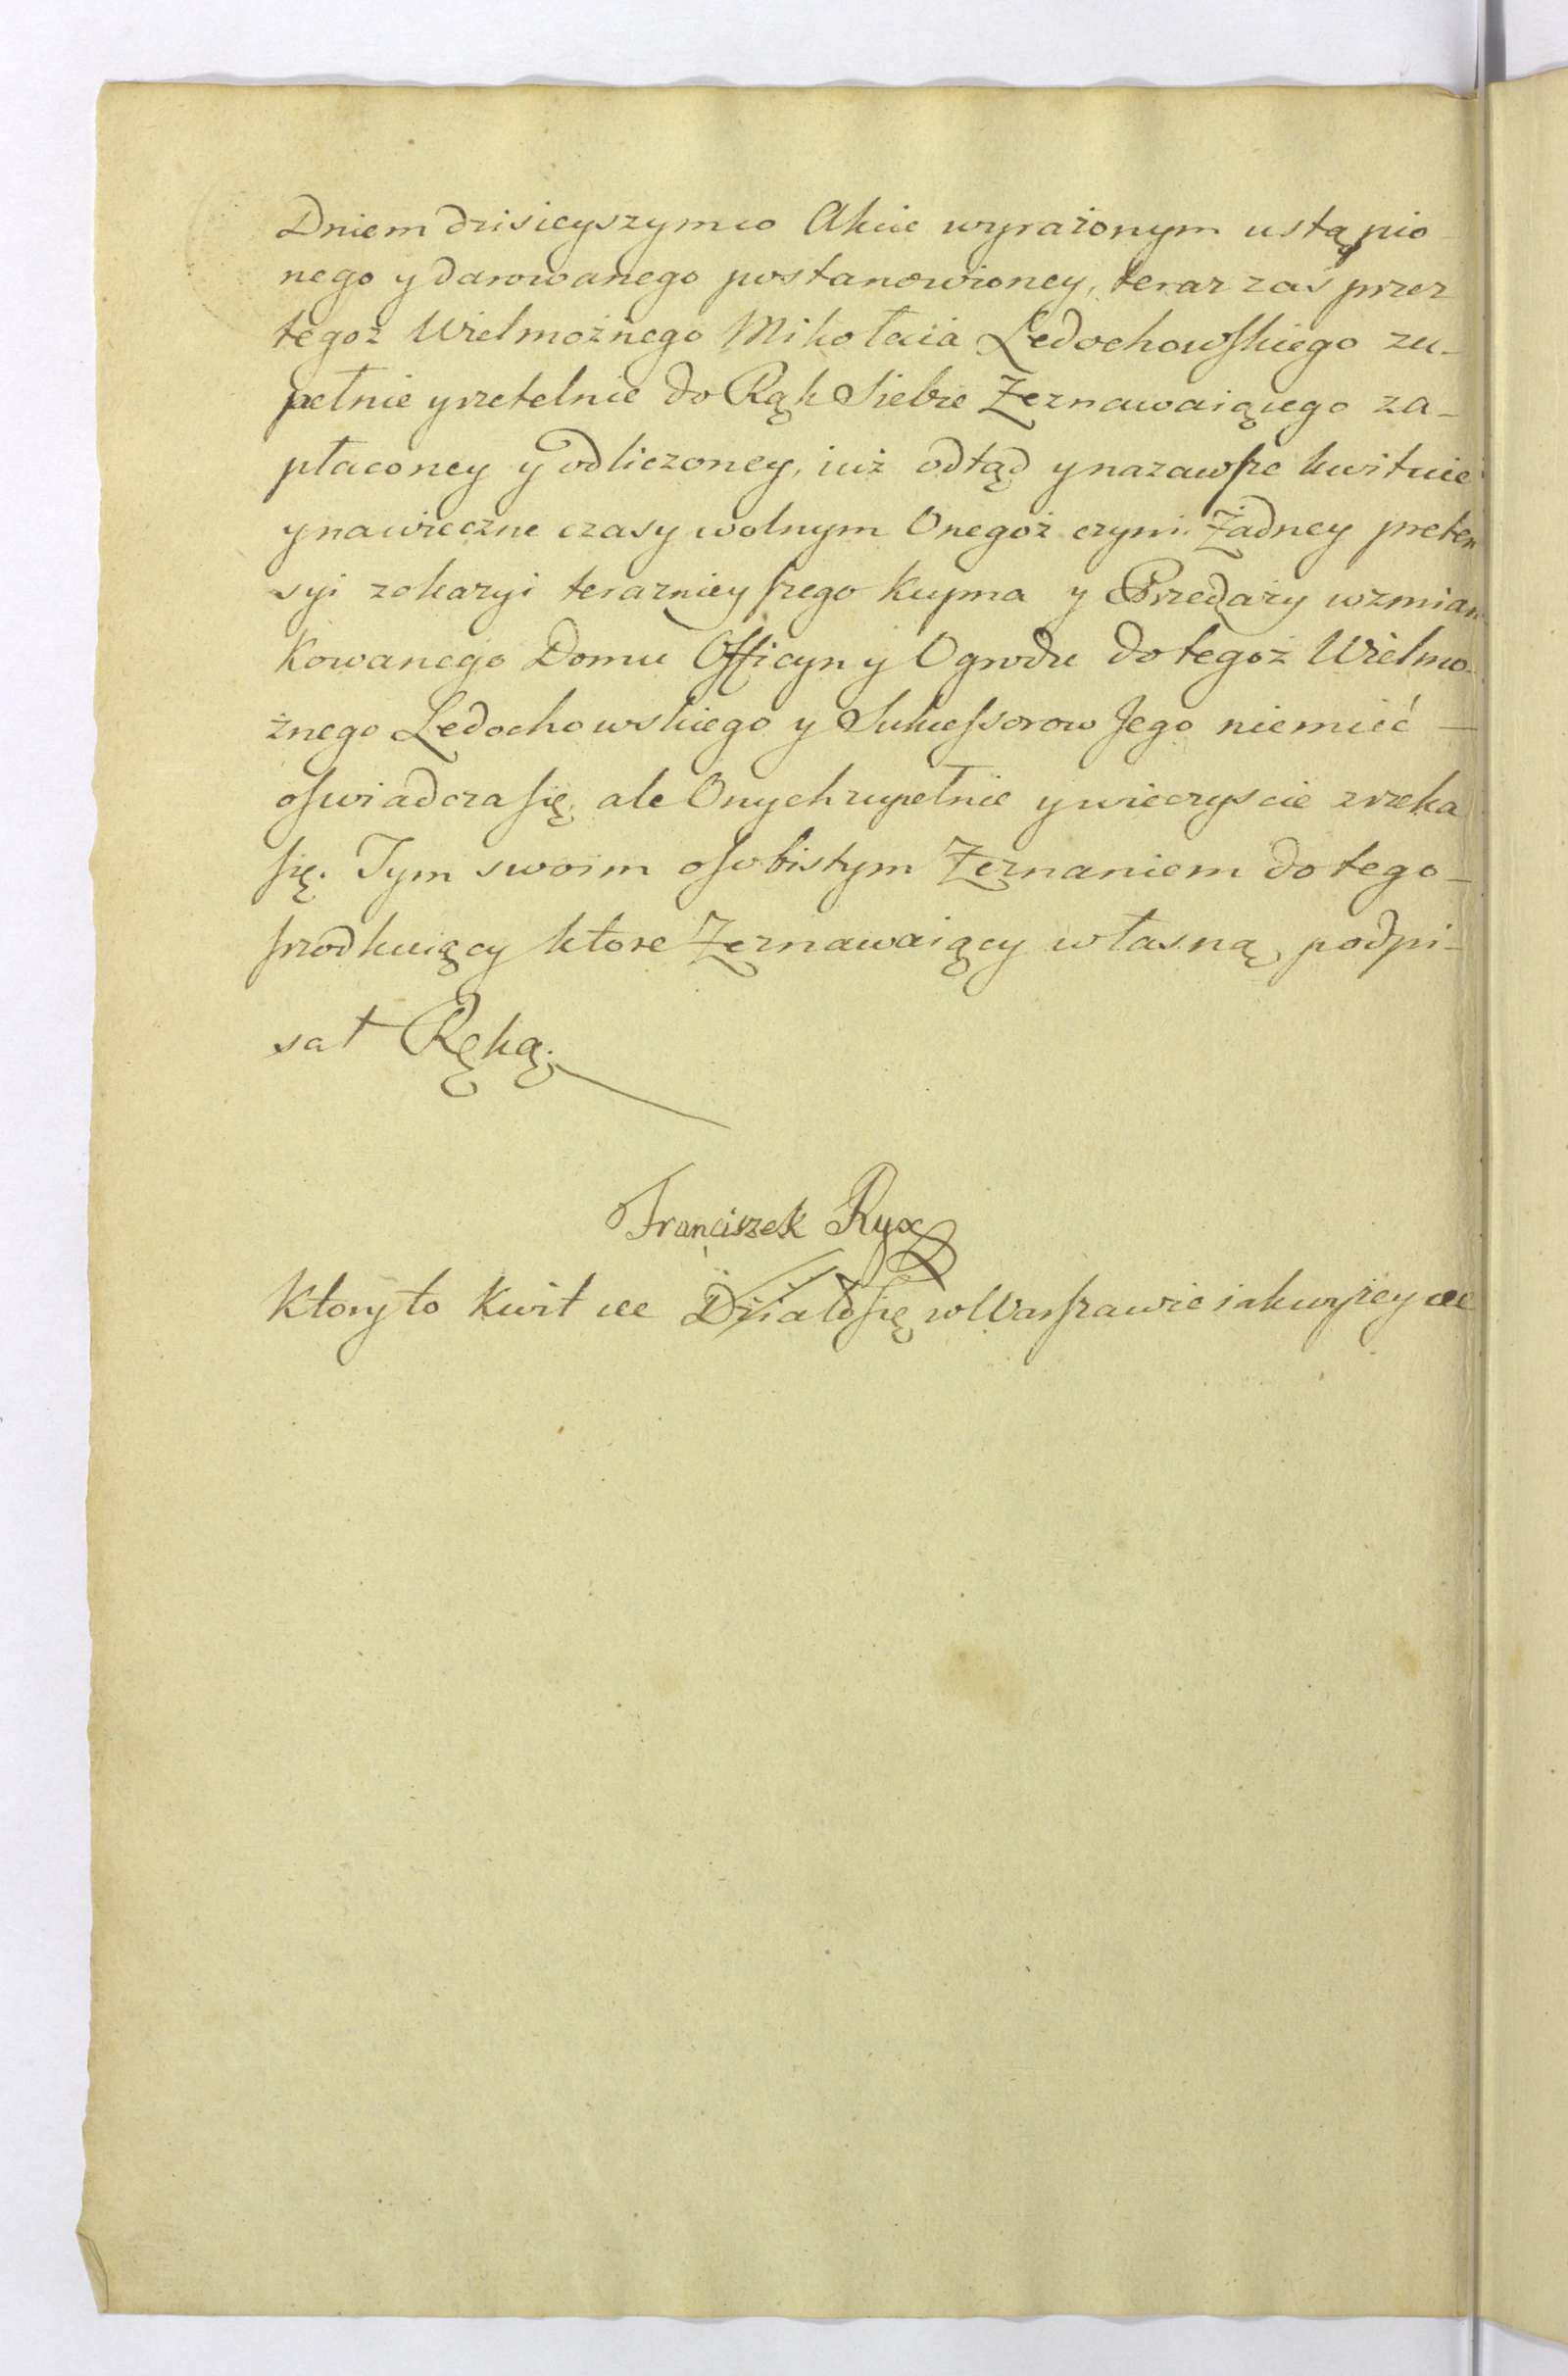 Dniem dzisieyszym w Akcie wyrażonym ustąpio-
nego y darowanego postanowioney, teraz zaś przez
tegoż Wielmożnego Mikołaia Ledochowskiego zu-
pełnie y rzetelnie do Rąk Siebie Zeznawaiącego za-
płaconey y odliczoney, iuż odtąd y nazawsze kwituie
y na wieczne czasy wolnym Onegoż czyni. Żadney preten
syi z okazyi teraznieyszego Kupna y Przedaży wzmian
kowanego Domu Officyn y Ogrodu do tegoż Wielmo-
żnego Ledochowskiego y Sukcessorow Jego niemieć —
oswiadcza się, ale Onych zupełnie y wieczyscie zrzeka
się. Tym swoim osobistym Zeznaniem do tego-
srzodkuiący ktore Zeznawaiący własną podpi-
sał Ręką.
Franciszek Ryx
Ktory to Kwit etc Działo się w Warszawie iak wyżey etc